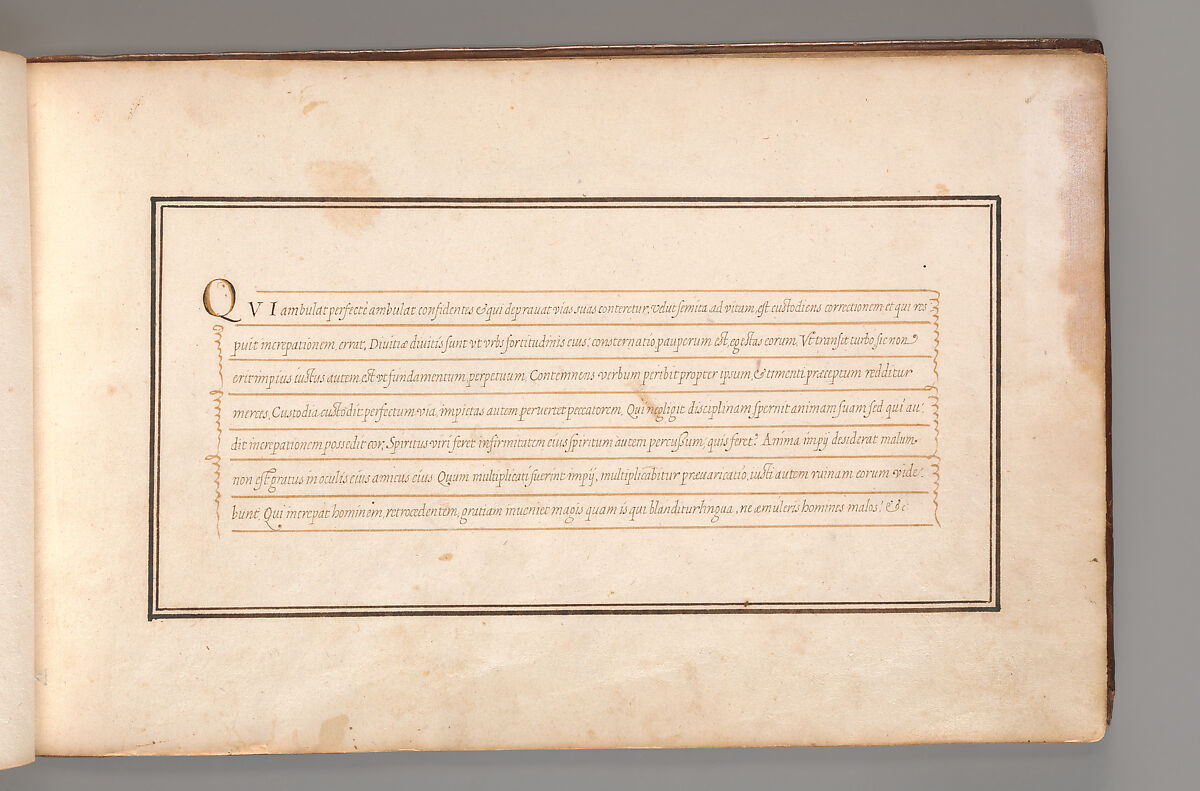 QVI ambulat perfectè ambulat confidentes & qui deprauat vias suas conteretur, velut semita ad vitam, est custodiens correctionem et qui res
puit increpationem, errat, Diuitiæ diuitis sunt vt vrbs fortitudinis eius: consternatio pauperum est, egestas eorum, Vt transit turbo sic non
erit impius iustus autem est vt fundamentum perpetuum, Contemnens verbum peribit propter ipsum, & timenti præceptum redditur
merces, Custodia custodit perfectum via, impietas autem peruertet peccatorem, Qui negligit disciplinam spernit animam suam sed qui au:
dit increpationem possedit cor, Spiritus viri feret infirmitatem eius spiritum autem percussum, quis feret? Anima impij desiderat malum
non est gratus in oculis eius amicus eius Quum multiplicati fuerint impij, multiplicabitur præuaricatio, iusti autem ruinam eorum vide:
bunt, Qui increpat hominem, retrocedentem, gratiam inueniet magis quam is qui blanditur lingua, ne æmuleris homines malos: &c